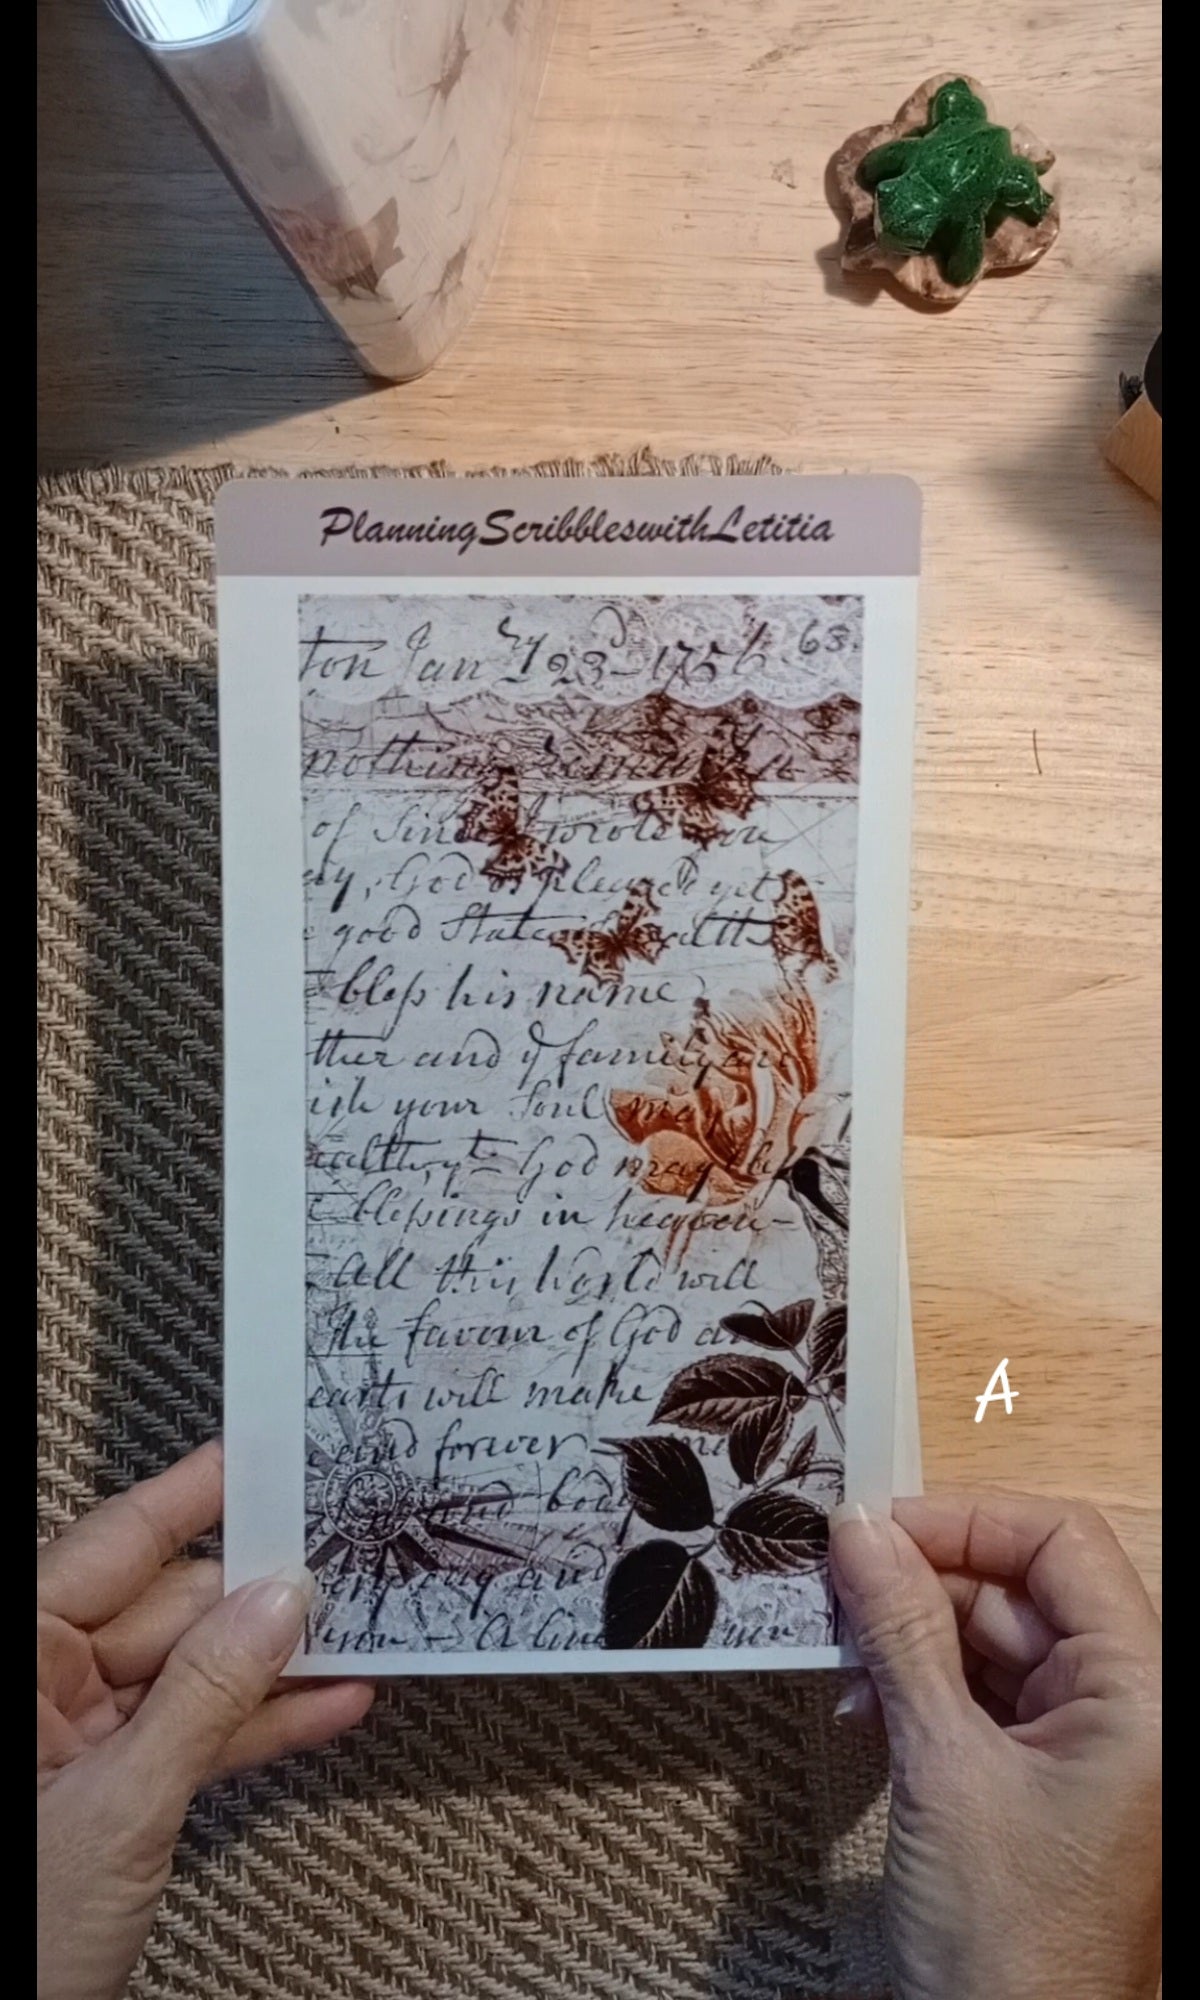 PlanningScribbleswithLetitia
ton Jan 23 1756 63.
nothing
of Since I wrote you
God pleased yet
good State
bless his name
ther and ye family are
ish your Soul may
God may be
blessings in heaven-
All this world will
the favour of God
will make
and forever
and body
and
you - A line you
A